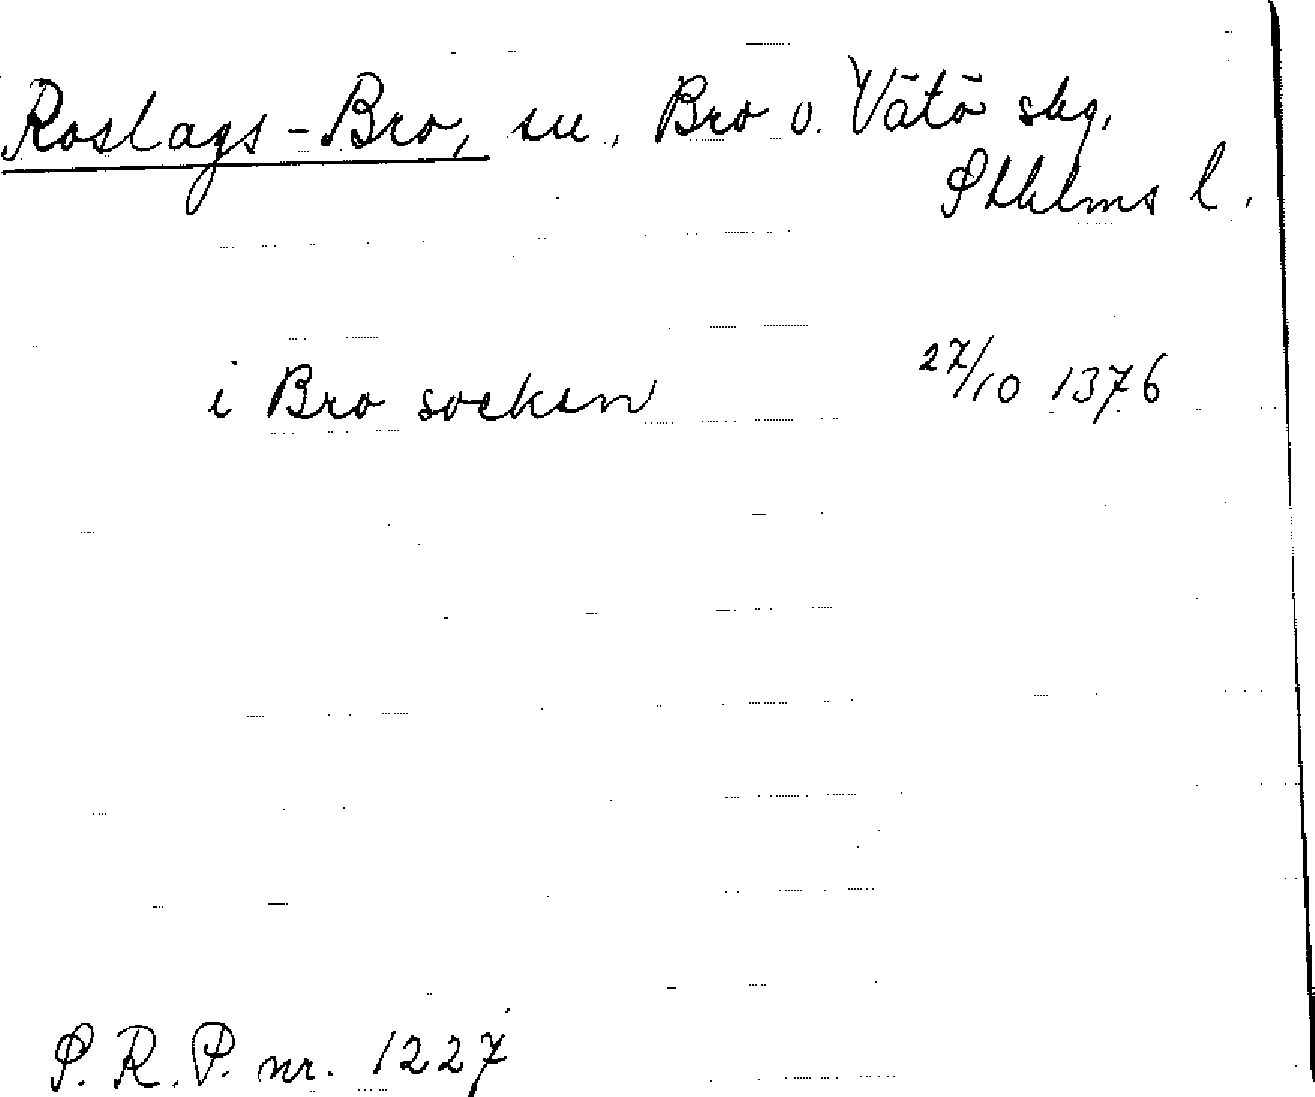 Roslags-Bro, sn., Bro o. Vätö skg,
Sthlms l.
i Bro socken 27/10 1376
S.R.P. nr. 1227